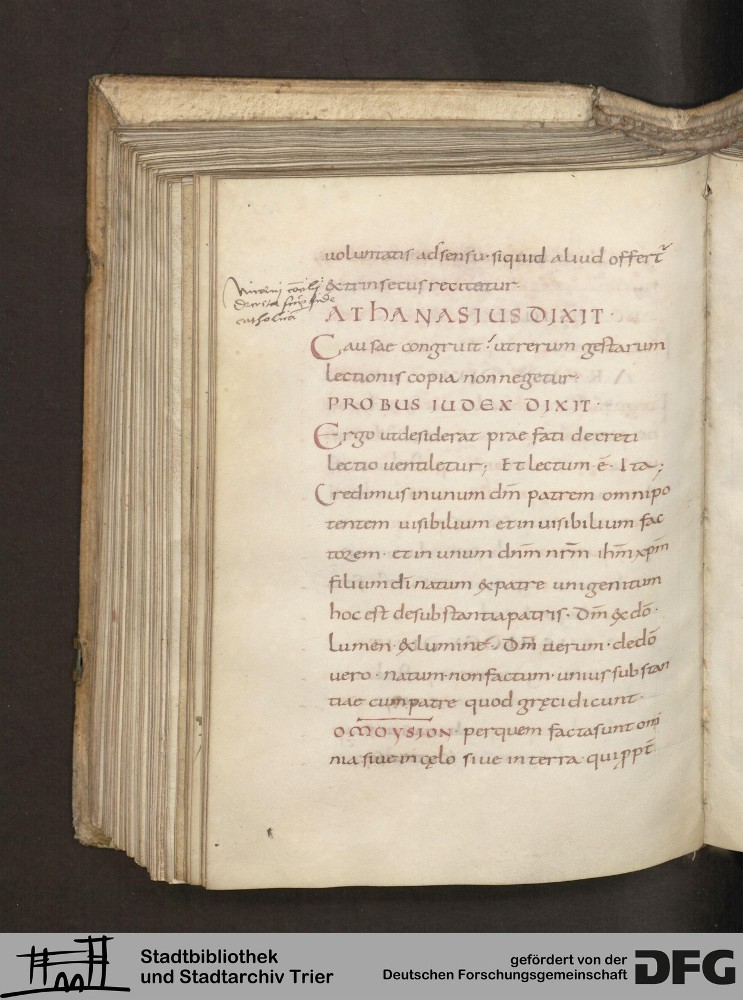 uoluntatis adsensu· siquid aliud offert᷑
&trinsecus recitetur·
Niceni
catholica
ATHANASIUS DIXIT·
Causae congruit· ut rerum gestarum
lectionis copia non negetur·
PROBUS IUDEX DIXIT·
Ergo utdesiderat praefati decreti
lectio uentiletur; Et lectum ē· Ita;
Credimus inunum dm̄ patrem omnipo
tentem uisibilium etinuisibilium fac
torem· et in unum dnm̄ nrm̄ ihm̄ xpm̄
filium dī natum &patre unigenitum
hoc est desubstantiapatris· Dm̄ &dō·
Lumen &lumine· Dm̄ uerum· dedō
uero· natum· nonfactum· unius substan
tiae cumpatre quod gręci dicunt·
OMOYSION· perquem factasunt om̄
nia siue incęlo siue interra· qui ppt̄
Stadtbibliothek
und Stadtarchiv Trier
gefördert von der
Deutschen Forschungsgemeinschaft
DFG